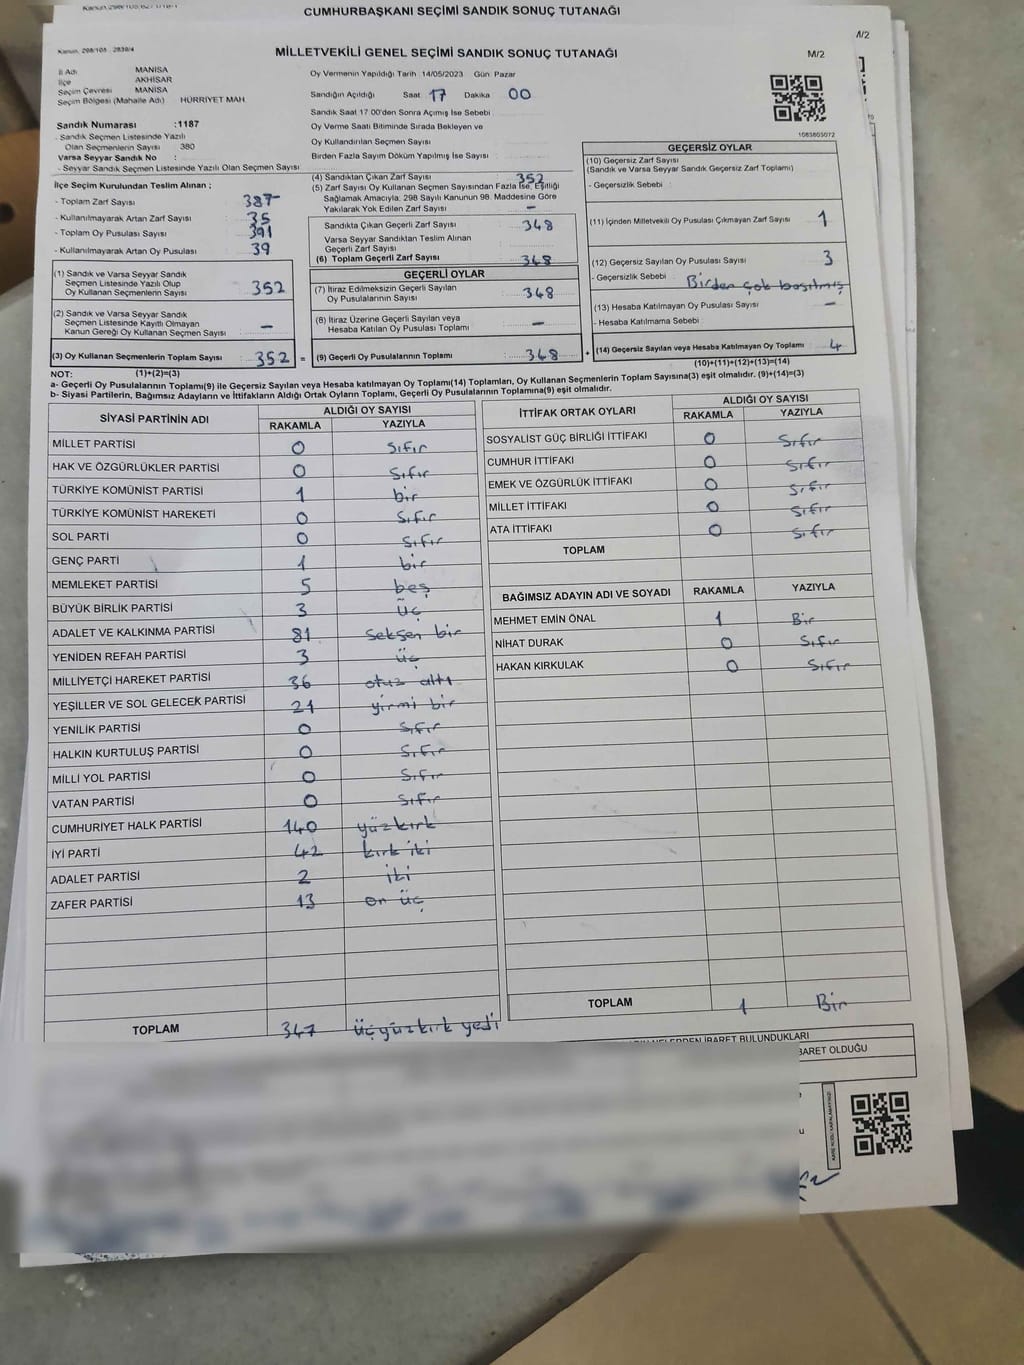 CUMHURBAŞKANI SEÇİMİ SANDIK SONUÇ TUTANAĞI
M/2
Kanun, 298/105 - 2839/4
MİLLETVEKİLİ GENEL SEÇİMİ SANDIK SONUÇ TUTANAĞI
M/2
İl Adı MANİSA
İlçe AKHİSAR
Seçim Çevresi MANİSA
Seçim Bölgesi (Mahalle Adı) HÜRRİYET MAH
Sandık Numarası :1187
- Sandık Seçmen Listesinde Yazılı
Olan Seçmenlerin Sayısı 380
Varsa Seyyar Sandık No :
- Seyyar Sandık Seçmen Listesinde Yazılı Olan Seçmen Sayısı
Oy Vermenin Yapıldığı Tarih 14/05/2023 Gün Pazar
Sandığın Açıldığı Saat 17 Dakika 00
Sandık Saat 17 00'den Sonra Açımış İse Sebebi
Oy Verme Saati Bitiminde Sırada Bekleyen ve
Oy Kullandırılan Seçmen Sayısı
Birden Fazla Sayım Döküm Yapılmış İse Sayısı
1083803072
İlçe Seçim Kurulundan Teslim Alınan ;
- Toplam Zarf Sayısı 387
- Kullanılmayarak Artan Zarf Sayısı 35
- Toplam Oy Pusulası Sayısı 391
- Kullanılmayarak Artan Oy Pusulası 39
(1) Sandık ve Varsa Seyyar Sandık
Seçmen Listesinde Yazılı Olup
Oy Kullanan Seçmenlerin Sayısı 352
(2) Sandık ve Varsa Seyyar Sandık
Seçmen Listesinde Kayıtlı Olmayan
Kanun Gereği Oy Kullanan Seçmen Sayısı –
(3) Oy Kullanan Seçmenlerin Toplam Sayısı : 352 =
(4) Sandıktan Çıkan Zarf Sayısı : 352
(5) Zarf Sayısı Oy Kullanan Seçmen Sayısından Fazla İse, Eşitliği
Sağlamak Amacıyla: 298 Sayılı Kanunun 98. Maddesine Göre
Yakılarak Yok Edilen Zarf Sayısı –
Sandıkta Çıkan Geçerli Zarf Sayısı 348
Varsa Seyyar Sandıktan Teslim Alınan
Geçerli Zarf Sayısı
(6) Toplam Geçerli Zarf Sayısı 348
GEÇERLİ OYLAR
(7) İtiraz Edilmeksizin Geçerli Sayılan
Oy Pusulalarının Sayısı : 348
(8) İtiraz Üzerine Geçerli Sayılan veya
Hesaba Katılan Oy Pusulası Toplamı : –
(9) Geçerli Oy Pusulalarının Toplamı : 348 +
GEÇERSİZ OYLAR
(10) Geçersiz Zarf Sayısı
(Sandık ve Varsa Seyyar Sandık Geçersiz Zarf Toplamı)
- Geçersizlik Sebebi :
(11) İçinden Milletvekili Oy Pusulası Çıkmayan Zarf Sayısı 1
(12) Geçersiz Sayılan Oy Pusulası Sayısı 3
- Geçersizlik Sebebi : Birden çok basılmış
(13) Hesaba Katılmayan Oy Pusulası Sayısı –
- Hesaba Katılmama Sebebi :
(14) Geçersiz Sayılan veya Hesaba Katılmayan Oy Toplamı : 4
NOT: (1)+(2)=(3)
(10)+(11)+(12)+(13)=(14)
a- Geçerli Oy Pusulalarının Toplamı(9) ile Geçersiz Sayılan veya Hesaba katılmayan Oy Toplamı(14) Toplamları, Oy Kullanan Seçmenlerin Toplam Sayısına(3) eşit olmalıdır. (9)+(14)=(3)
b- Siyasi Partilerin, Bağımsız Adayların ve İttifakların Aldığı Ortak Oyların Toplamı, Geçerli Oy Pusulalarının Toplamına(9) eşit olmalıdır.
SİYASİ PARTİNİN ADI ALDIĞI OY SAYISI
RAKAMLA YAZIYLA
MİLLET PARTİSİ 0 Sıfır
HAK VE ÖZGÜRLÜKLER PARTİSİ 0 Sıfır
TÜRKİYE KOMÜNİST PARTİSİ 1 bir
TÜRKİYE KOMÜNİST HAREKETİ 0 Sıfır
SOL PARTİ 0 Sıfır
GENÇ PARTİ 1 bir
MEMLEKET PARTİSİ 5 beş
BÜYÜK BİRLİK PARTİSİ 3 üç
ADALET VE KALKINMA PARTİSİ 81 Seksen bir
YENİDEN REFAH PARTİSİ 3 üç
MİLLİYETÇİ HAREKET PARTİSİ 36 otuz altı
YEŞİLLER VE SOL GELECEK PARTİSİ 21 yirmi bir
YENİLİK PARTİSİ 0 Sıfır
HALKIN KURTULUŞ PARTİSİ 0 Sıfır
MİLLİ YOL PARTİSİ 0 Sıfır
VATAN PARTİSİ 0 Sıfır
CUMHURİYET HALK PARTİSİ 140 yüzkırk
İYİ PARTİ 42 kırk iki
ADALET PARTİSİ 2 iki
ZAFER PARTİSİ 13 on üç
TOPLAM 347 üçyüzkırk yedi
İTTİFAK ORTAK OYLARI ALDIĞI OY SAYISI
RAKAMLA YAZIYLA
SOSYALİST GÜÇ BİRLİĞİ İTTİFAKI 0 Sıfır
CUMHUR İTTİFAKI 0 Sıfır
EMEK VE ÖZGÜRLÜK İTTİFAKI 0 Sıfır
MİLLET İTTİFAKI 0 Sıfır
ATA İTTİFAKI 0 Sıfır
TOPLAM
BAĞIMSIZ ADAYIN ADI VE SOYADI RAKAMLA YAZIYLA
MEHMET EMİN ÖNAL 1 Bir
NİHAT DURAK 0 Sıfır
HAKAN KIRKULAK 0 Sıfır
TOPLAM 1 Bir
İBARET BULUNDUKLARI
BARET OLDUĞU